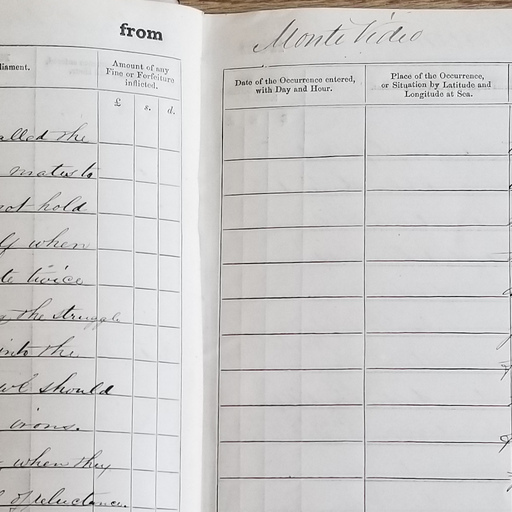 from
liament.
Amount of any
Fine or Forfeiture
inflicted.
£ s. d.
alled the
mates to
not hold
when
te twice
the struggle
into the
should
irons.
when they
of reluctance.
Monte Video
Date of the Occurrence entered,
with Day and Hour.
Place of the Occurrence,
or Situation by Latitude and
Longitude at Sea.